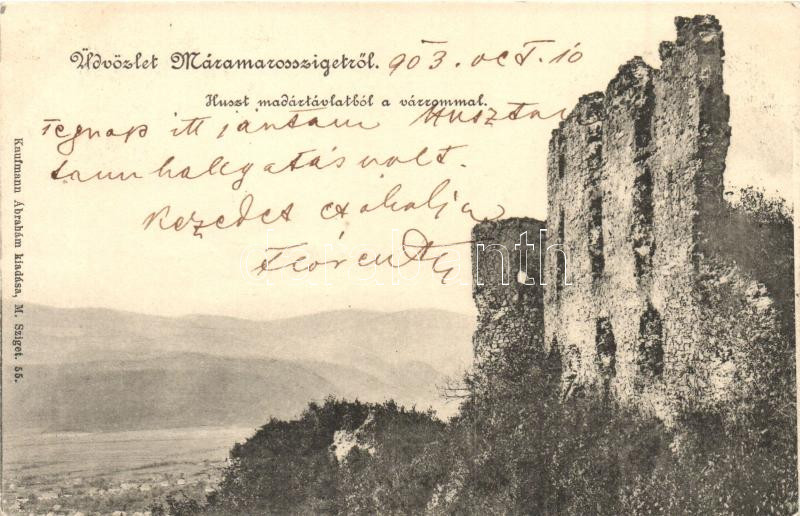 Üdvözlet Máramarosszigetről. 903. oct. 10
Huszt madártávlatból a várrommal.
Tegnap itt jártam Husztan
tanuhalgatás volt.
Kezedet csokolja
Flórent
Kaufmann Ábrahám kiadása, M. Sziget. 55.